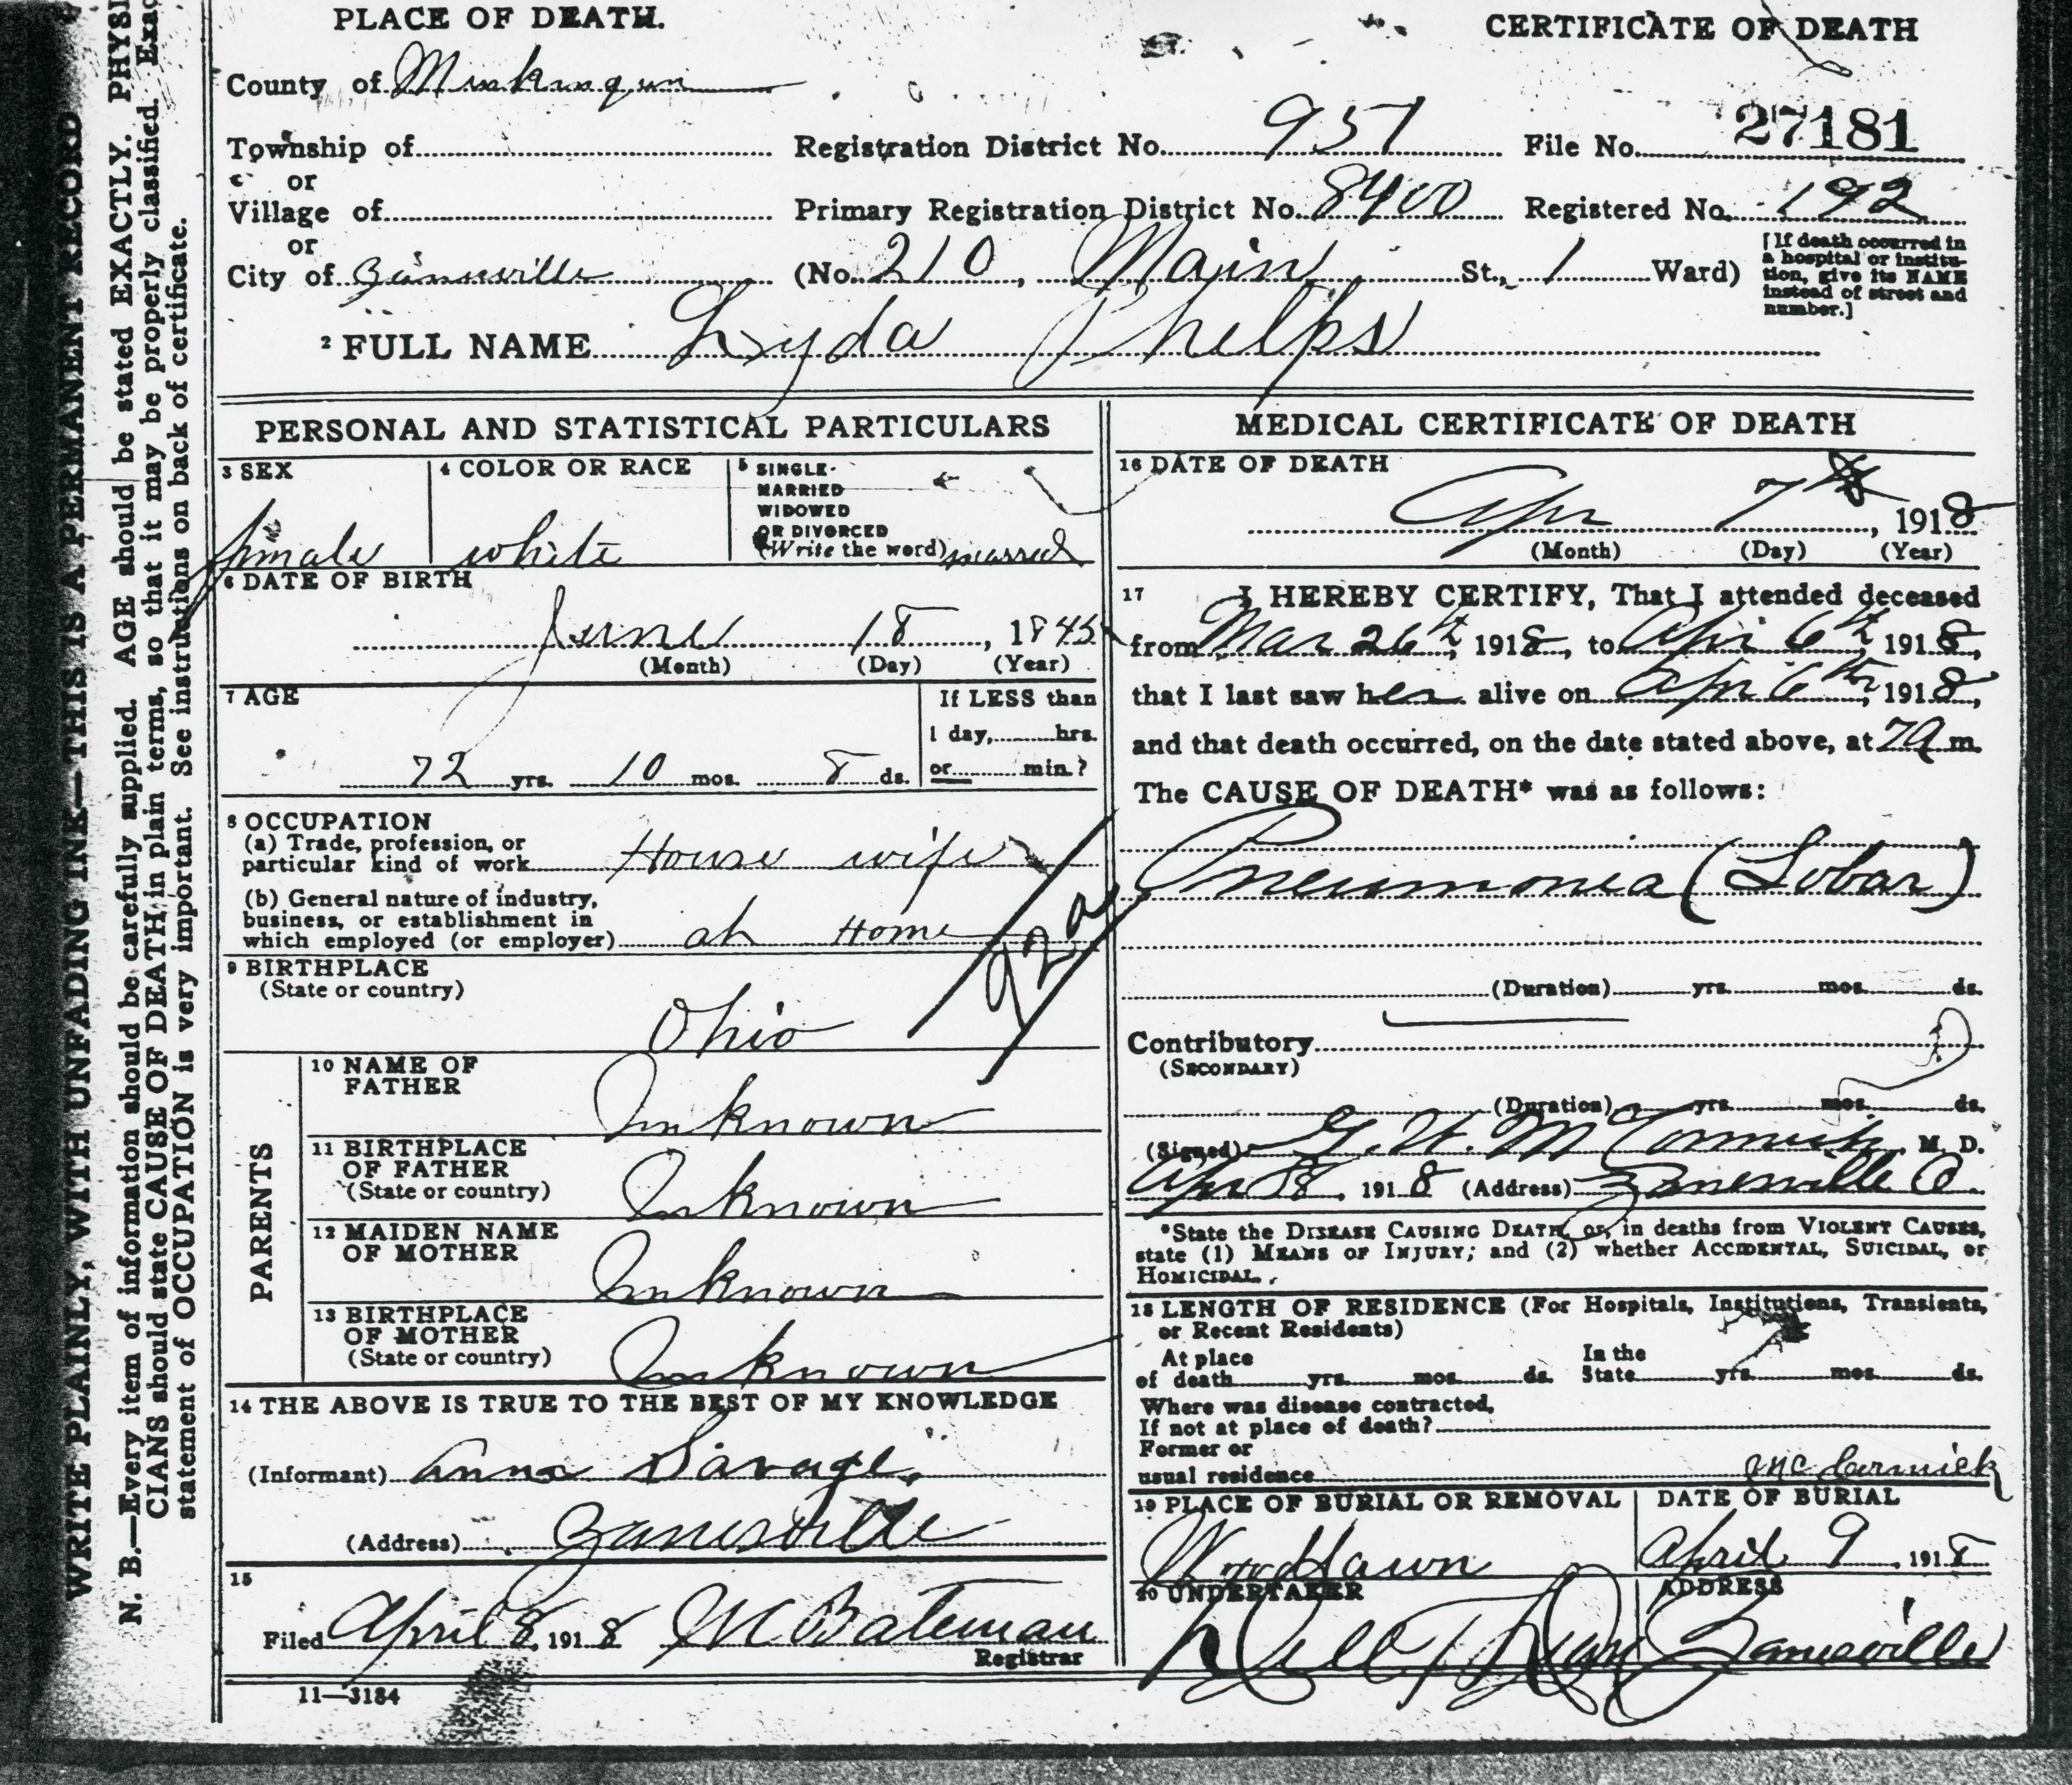 PLACE OF DEATH.
CERTIFICATE OF DEATH
County of Muskingum
Township of
Registration District No. 957
File No. 27181
or
Village of
Primary Registration District No. 8400
Registered No. 192
or
City of Zanesville
(No. 210, Main St., 1 Ward)
[If death occurred in
a hospital or institu-
tion, give its NAME
instead of street and
number.]
2 FULL NAME Lyda Phelps
PERSONAL AND STATISTICAL PARTICULARS
3 SEX
female
4 COLOR OR RACE
white
5 SINGLE
MARRIED
WIDOWED
OR DIVORCED
(Write the word) married
6 DATE OF BIRTH
June 18, 1845
(Month) (Day) (Year)
7 AGE
72 yrs. 10 mos. 8 ds.
If LESS than
1 day, hrs.
or min.?
8 OCCUPATION
(a) Trade, profession, or
particular kind of work House wife
(b) General nature of industry,
business, or establishment in
which employed (or employer) at Home
9 BIRTHPLACE
(State or country)
Ohio
PARENTS
10 NAME OF
FATHER
Unknown
11 BIRTHPLACE
OF FATHER
(State or country)
Unknown
12 MAIDEN NAME
OF MOTHER
Unknown
13 BIRTHPLACE
OF MOTHER
(State or country)
Unknown
14 THE ABOVE IS TRUE TO THE BEST OF MY KNOWLEDGE
(Informant) Anna Savage.
(Address) Zanesville
15
Filed April 8, 1918 M Bateman
Registrar
11—3184
MEDICAL CERTIFICATE OF DEATH
16 DATE OF DEATH
Apr 7th, 1918
(Month) (Day) (Year)
17 I HEREBY CERTIFY, That I attended deceased
from Mar 26th, 1918, to Apr 6th, 1918,
that I last saw her alive on Apr 6th, 1918,
and that death occurred, on the date stated above, at 7 A m.
The CAUSE OF DEATH* was as follows:
Pneumonia (Lobar)
92a
(Duration) yrs. mos. ds.
Contributory
(SECONDARY)
(Duration) yrs. mos. ds.
(Signed) McCormick, M. D.
Apr 8, 1918 (Address) Zanesville O.
*State the DISEASE CAUSING DEATH, or, in deaths from VIOLENT CAUSES,
state (1) MEANS OF INJURY; and (2) whether ACCIDENTAL, SUICIDAL, or
HOMICIDAL.
18 LENGTH OF RESIDENCE (For Hospitals, Institutions, Transients,
or Recent Residents)
At place
of death yrs. mos. ds.
In the
State yrs. mos. ds.
Where was disease contracted,
If not at place of death?
Former or
usual residence
McCormick
19 PLACE OF BURIAL OR REMOVAL
Woodlawn
DATE OF BURIAL
April 9, 1918
20 UNDERTAKER
ADDRESS
Zanesville
WRITE PLAINLY, WITH UNFADING INK—THIS IS A PERMANENT RECORD
N. B.—Every item of information should be carefully supplied. AGE should be stated EXACTLY. PHYSI
CIANS should state CAUSE OF DEATH in plain terms, so that it may be properly classified. Exac
statement of OCCUPATION is very important. See instructions on back of certificate.